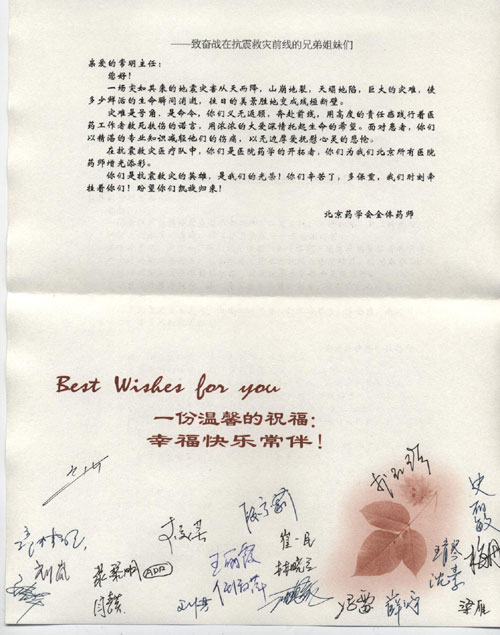 ——致奋战在抗震救灾前线的兄弟姐妹们
亲爱的常明主任：
您好！
一场突如其来的地震灾害从天而降，山崩地裂，天塌地陷，巨大的灾难，使
多少鲜活的生命瞬间消逝，往日的美景胜地变成残垣断壁。
灾难是号角，是命令，你们义无返顾，奔赴前线，用高度的责任感践行着医
药工作者救死扶伤的诺言，用浓浓的大爱深情托起生命的希望。面对患者，你们
以精湛的专业知识减轻他们的伤痛，以无边厚爱抚慰心灵的悲怆。
在抗震救灾医疗队中，你们是医院药学的开拓者，你们为我们北京所有医院
药师增光添彩。
你们是抗震救灾的英雄，是我们的光荣！你们辛苦了，多保重，我们时刻牵
挂着你们！盼望你们凯旋归来！
北京药学会全体药师
Best Wishes for you
一份温馨的祝福：
幸福快乐常伴！
史丽敏
王丽霞
崔一民
林晓兰
冯雷
梅丹
梁雁